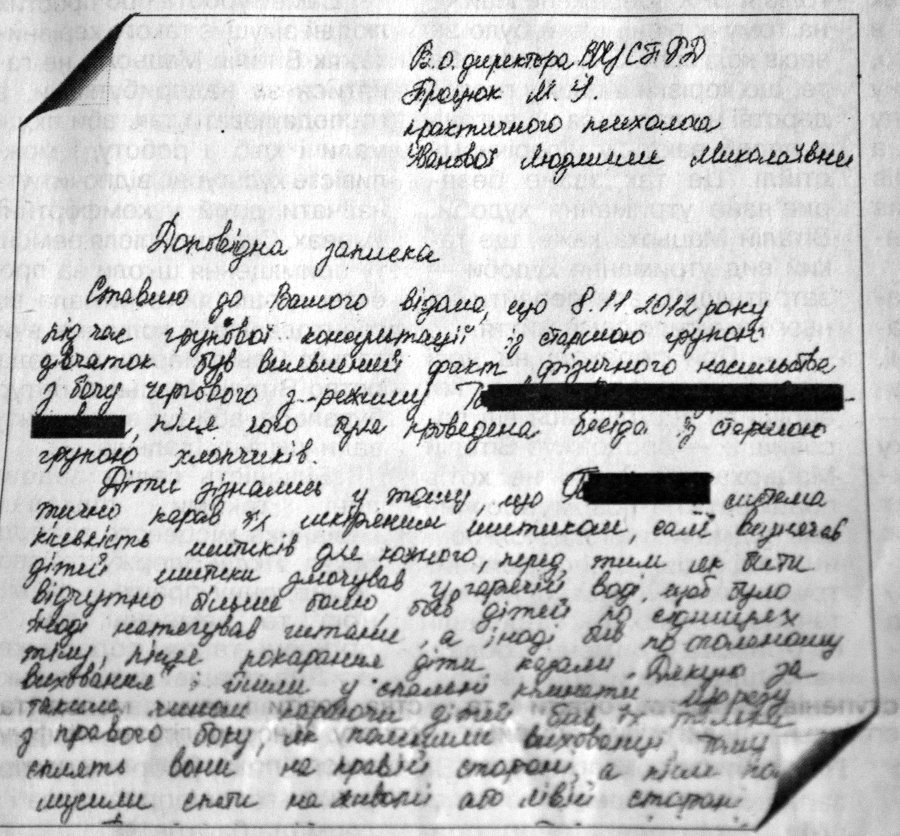 В.о. директора ВОЦСПРД
Процюк М. Й.
практичного психолога
Іванової Людмили Миколаївни
Доповідна записка
Ставлю до Вашого відома, що 8.11 2012 року
під час групової консультації із старшою групою
дівчаток був виявлений факт фізичного насильства
з боку чергового з режиму По
, після чого була проведена бесіда із старшою
групою хлопчиків.
Діти зізнались у тому, що По система
тично карав їх шкіряним шлепком, самі визначав
кількість для кожного, перед тим як бити
дітей змочував у гарячій воді, щоб було
відчутно більше болю, бив дітей по сідницях
іноді натягував штани, а іноді бив по голенькому
тілу, після покарання діти казали „Дякую за
виховання" і йшли у спальні кімнати
таким чином караючи дітей, бив їх тільки
з правого боку, як помітили вихованці, тому
сплять вони на правій стороні, а після
мусили спати на животі або лівій стороні